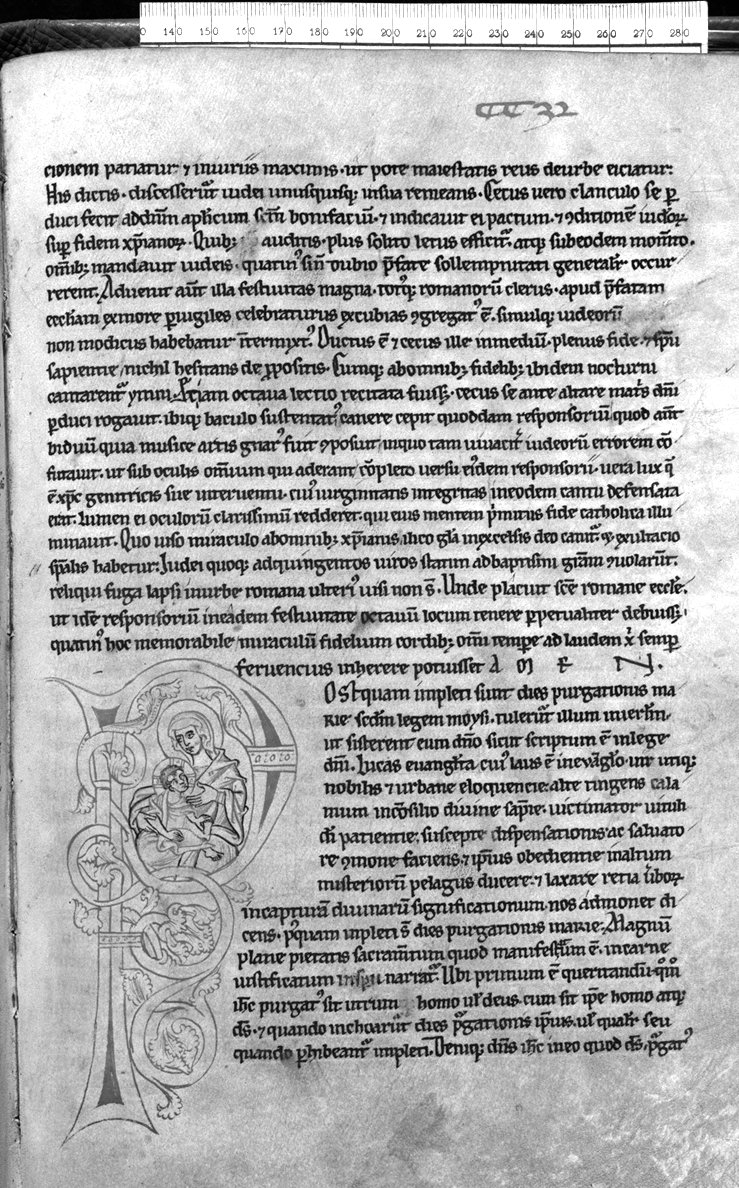 140 150 160 170 180 190 200 210 220 230 240 250 260 270 280
cionem patiatur ⁊ iniuriis maximis · ut pote maiestatis reus deurbe eiciatur:
His dictis · discesserūt iudei unusquisq; insua remeans · Cecus uero clanculo se ꝑ
duci fecit addñm aplicum scm̄ bonifaciū · ⁊ indicauit ei pactum · ⁊ ꝯditionē iudeoꝝ
suꝑ fidem xp̄ianoꝝ · Quib; auditis · plus solito letus efficit᷑ · atq; subeodem mom̄to ·
om̄ib; mandauit iudeis · quatin᷒ sin̄ dubio p̄fate sollempnitati general᷑r occur
rerent · Aduenit aūt illa festiuitas magna · totq; romanorū clerus · apud p̄fatam
eccl̄iam exmore ꝑuigiles celebraturus excubias ꝯgregat᷒ ē · simulq; iudeorū
non modicus habebatur īterm̄ixt᷒ · Ductus ē ⁊ cecus ille inmediū · plenus fide · ⁊ sp̄u
sapientie / nichil hesitans de ꝓpositis · Cumq; abomnib; fidelib; ibidem nocturni
cantarent᷑ ymni · Et iam octaua lectio recitata fuiss; · cecus se ante altare mat̄s dn̄i
ꝑduci rogauit · ibiq; baculo sustentat᷒ canere cepit quoddam responsoriū quod aūt
biduū quia musice artis gnar᷒ fuit ꝯposuit inquo tam uiuacit̄ iudeorū errorem cō
futauit · ut sub oculis om̄ium qui aderant cōpleto uersu ei᷒dem responsorii · uera lux q̄
ē xp̄c genitricis sue interuentu · cui᷒ uirginitatis integritas ineodem cantu defensata
erat · lumen ei oculorū clarissimū redderet · qui eius mentem p̄mitus fide catholica illu
minauit · Quo uiso miraculo abomnib; xp̄ianis ilico gl̄a inexcelsis deo canit᷑ · ⁊ exultacio
sp̄alis habetur · Iudei quoq; adquingentos uiros statim adbaptismi gr̄am ꝯuolarūt ·
reliqui fuga lapsi inurbe romana ulteri᷒ uisi non s̄ · Unde placuit sc̄e romane eccl̄e ·
ut idē responsoriū ineadem festiuitate octauū locum tenere ꝑpetualiter debuiss; ·
quatin᷒ hoc memorabile miraculū fidelium cordib; om̄i tempore ad laudem x̄ semꝑ
feruencius inherere potuisset A M E N ·
Ostquam impleti sunt dies purgationis ma
rie · scdm̄ legem moysi · tulerūt illum inierl̄m ·
ut sisterent eum dn̄o sicut scriptum ē inlege
dn̄i · Lucas euangl̄ista cui᷒ laus ē ineuāgl̄o · uir utiq;
nobilis ⁊ urbane eloquencie · alte tingens cala
mum incōsilio diuine sap̄ie · uictimator uituli
di patientie · suscepte dispensationis ac saluato
re ꝯmone faciens · ⁊ ip̄ius obedientie inaltum
misteriorū pelagus ducere · ⁊ laxare retia ūboꝝ
incapturā diuinarū significationum nos admonet di
cens · Pꝰquam inpleti s̄ dies purgationis marie · Magnū
plane pietatis sacram̄tum quod manifestum ē · incarne
iustificatum inspū narrat᷑ · Ubi primum ē queritandū · q̄m̄
ih̄c purgat᷒ sit utrum homo ul̄ deus · cum sit ip̄e homo atq;
ds̄ · ⁊ quando inchoarūt dies p̄gationis ip̄ius · ul̄ qual᷑r seu
quando ꝑhibeant᷑ impleti · Deniq; dn̄s ih̄c ineo quod ds̄ · p̄gat᷒